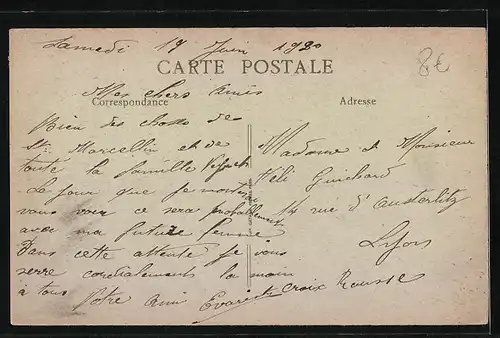 Samedi 19 Juin 1920
8€
CARTE POSTALE
Mes chers Amis
Correspondance
Adresse
Bien des choses de
St Marcellin et de
toute la famille
Le jour que je monterai
vous voir ce sera probablement
avec ma future femme
Dans cette attente je vous
serre cordialement la main
à tous Votre Ami Evariste
Madame et Monsieur
Héli Guichard
14 rue d'Austerlitz
Lyon
Croix Rousse